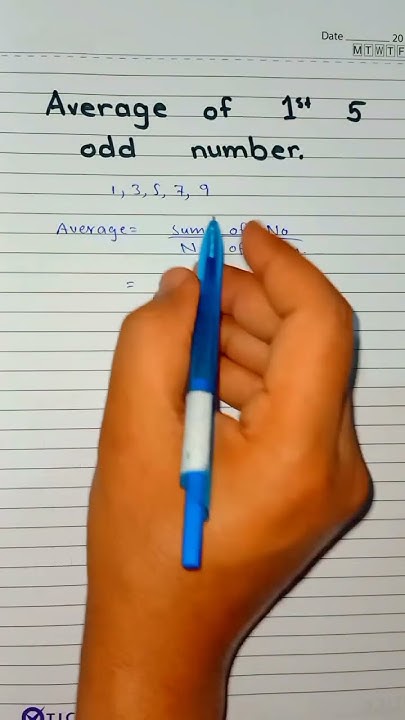 Date 20
M T W T F
Average of 1st 5
odd number.
1, 3, 5, 7, 9
Average = Sum of No
of
=